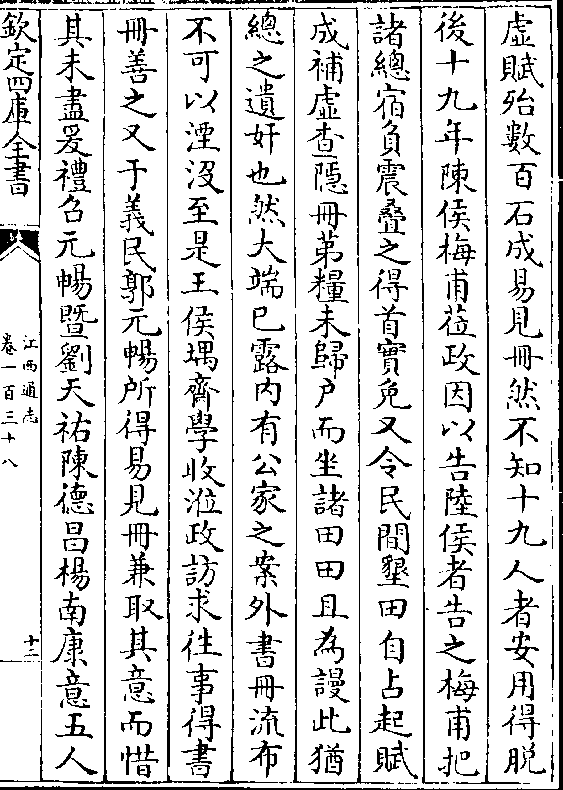 虛賦殆數百石成易見冊然不知十九人者安用得脱
後十九年陳侯梅甫莅政因以告陸侯者告之梅甫把
諸總宿負震疊之得首實免又令民間墾田自占起賦
成補虛查隱冊第糧未歸户而坐諸田田且為謾此猶
總之遺奸也然大端已露内有公家之案外書冊流布
不可以湮沒至是王侯堣齋學收涖政訪求徃事得書
冊善之又于義民郭元暢所得易見冊兼取其意而惜
其未盡爰禮召元暢暨劉天祐陳德昌楊南康意五人
欽定四庫全書
江西通志
卷一百三十八
十二